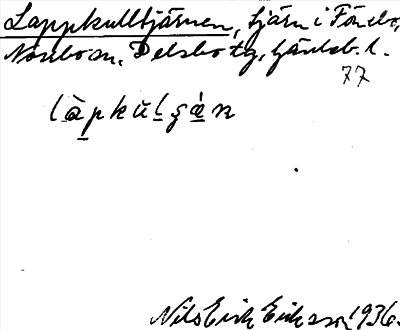 Lappkulltjärnen, tjärn i Fönebo,
Norrbo sn, Delsbo tg, Gävleb. l.
77
làpkŭlʂä́n
Nils Erik Eriksson 1936.